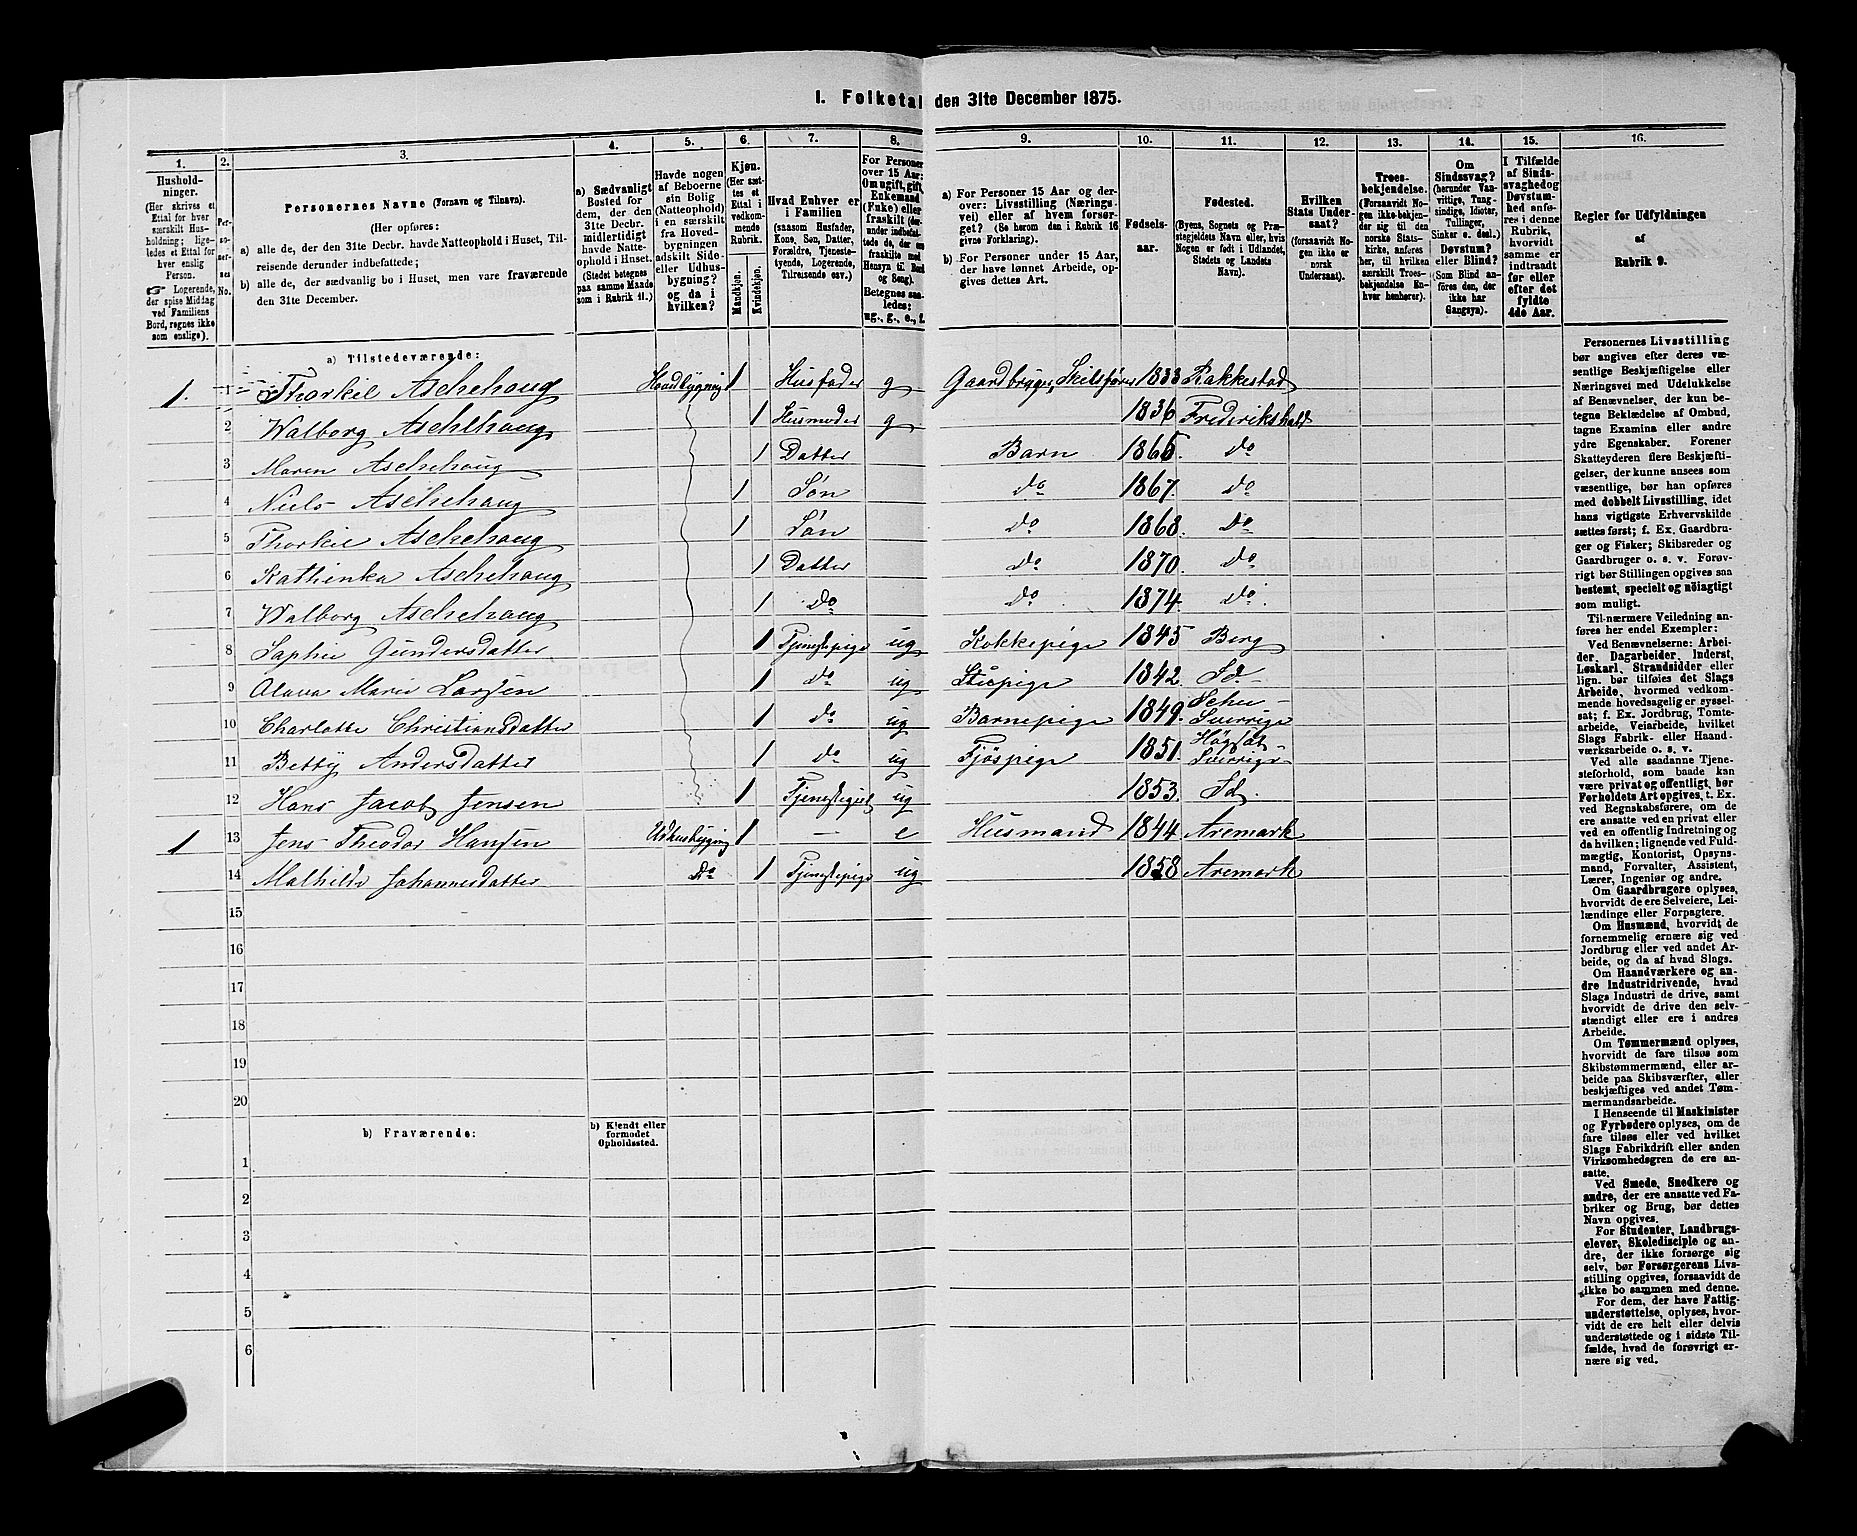 I. Folketal den 31te December 1875.
1.
Hushold-
ninger.
(Her skrives et
Ettal for hver
særskilt Hus-
holdning; lige-
ledes et Ettal for
hver enslig
Person.
Logerende,
der spise Middag
ved Familiens
Bord, regnes ikke
som enslige).
2.
Per-
so-
ner-
nes
No.
3.
Personernes Navne (Fornavn og Tilnavn).
(Her opføres:
a) alle de, der den 31te Decbr. havde Natteophold i Huset, Til-
reisende derunder indbefattede;
b) alle de, der sædvanlig bo i Huset, men vare fraværende
den 31te December.
4.
a) Sædvanligt
Bosted for
dem, der den
31te Decbr.
midlertidigt
havde Natte-
ophold i Huset.
(Stedet betegnes
paa samme Maade
som i Rubrik 11.)
5.
Havde nogen
af Beboerne
sin Bolig
(Natteophold)
i en særskilt
fra Hoved-
bygningen
adskilt Side-
eller Udhus-
bygning?
og da i
hvilken?
6.
Kjøn.
(Her sæt-
tes et
Ettal i
vedkom-
mende
Rubrik.
Mandkjøn.
Kvindekjøn.
7.
Hvad Enhver er
i Familien
(saasom Husfader,
Kone, Søn, Datter,
Forældre, Tjeneste-
tyende, Logerende,
Tilreisende osv.)
8.
For Personer
over 15 Aar:
Om ugift, gift,
Enkemand
(Enke) eller
fraskilt (der-
under indbefat-
tede de, der ere
fraskilte med
Hensyn til Bord
og Seng).
Betegnes saa-
ledes:
ug., g., e., f.
9.
a) For Personer 15 Aar og der-
over: Livsstilling (Nærings-
vei) eller af hvem forsør-
get? (Se herom den i Rubrik 16
givne Forklaring).
b) For Personer under 15 Aar,
der have lønnet Arbeide, op-
gives dettes Art.
10.
Fødsels-
aar.
11.
Fødested.
(Byens, Sognets og Præ-
stegjeldets Navn eller, hvis
Nogen er født i Udlandet,
Stedets og Landets
Navn).
12.
Hvilken
Stats Under-
saat?
(forsaavidt No-
gen ikke er
norsk
Undersaat).
13.
Troes-
bekjendelse.
(Forsaavidt No-
gen ikke bekjen-
der sig til den
norske Stats-
kirke, anføres
her, til hvilken
særskilt Troes-
bekjendelse En-
hver henhører).
14.
Om
Sindssvag?
(herunder Van-
vittige, Tung-
sindige, Idioter,
Tullinger,
Sinker o. desl.)
Døvstum?
eller Blind?
(Som Blind an-
føres den, der
ikke har
Gangsyn).
15.
I Tilfælde
af Sinds-
svaghed og
Døvstum-
hed anfø-
res i denne
Rubrik,
hvorvidt
samme er
indtraadt
før eller
efter det
fyldte
4de Aar.
16.
Regler for Udfyldningen
af
Rubrik 9.
a) Tilstedeværende:
1. 1 Thorkil Aschehoug Hovedbygning 1 Husfader g Gaardbruger, Skibsfører 1833 Rakkestad
2 Walborg Aschehoug 1 Husmoder g 1836 Frederikshald
3 Maren Aschehoug 1 Datter Barn 1865. do
4 Niels Aschehoug 1 Søn do 1867. do
5 Thorkil Aschehoug 1 Søn do 1868. do
6 Kathinka Aschehoug 1 Datter do 1870. do
7 Walborg Aschehoug 1 do do 1874. do
8 Sophie Gundersdatter 1 Tjenestepige ug Kokkepige 1845 Berg
9 Olava Marie Larsen 1 do ug Stuepige 1842. Id
10 Charlotte Christiansdatter 1 do ug Barnepige 1849. Sverrige
11 Betty Andersdatter 1 do ug Fjøspige 1851. Sverrige
12 Hans Jacob Jensen 1 Tjenestegut ug 1853. Id.
1 13 Jens Theodor Hansen Udhusbygning 1 — e Husmand 1844 Aremark
14 Mathilde Johannesdatter Do 1 Tjenestepige ug 1858 Aremark
15
16
17
18
19
20
b) Fraværende:
b) Kjendt eller
formodet
Opholdssted.
1
2
3
4
5
6
Personernes Livsstilling
bør angives efter deres væ-
sentlige Beskjæftigelse eller
Næringsvei med Udelukkelse
af Benævnelser, der kun be-
tegne Beklædelse af Ombud,
tagne Examina eller andre
ydre Egenskaber. Forener
Skatteyderen flere Beskjæfti-
gelser, der kunne ansees som
væsentlige, bør han opføres
med dobbelt Livsstilling, idet
hans vigtigste Erhvervskilde
sættes først; f. Ex. Gaardbru-
ger og Fisker; Skibsreder og
Gaardbruger o. s. v. Forøv-
rigt bør Stillingen opgives saa
bestemt, specielt og nøiagtigt
som muligt.
Til nærmere Veiledning an-
føres her endel Exempler:
Ved Benævnelserne: Arbei-
der, Dagarbeider, Inderst,
Løskarl, Strandsidder eller
lign. bør tilføies det Slags
Arbeide, hvormed vedkom-
mende hovedsagelig er syssel-
sat; f. Ex. Jordbrug, Tomte-
arbeide, Veiarbeide, hvilket
Slags Fabrik- eller Haand-
værksarbeide o. s. v.
Ved alle saadanne Tjene-
steforhold, som baade kan
være privat og offentligt, bør
Forholdets Art opgives, t. Ex.
ved Regnskabsførere, om de
ere ansatte ved en privat eller
ved en offentlig Indretning og
da hvilken; lignende ved Fuld-
mægtig, Kontorist, Opsyns-
mand, Forvalter, Assistent,
Lærer, Ingeniør og andre.
Om Gaardbrugere oplyses,
hvorvidt de ere Selveiere, Lei-
lændinge eller Forpagtere.
Om Husmænd, hvorvidt de
fornemmelig ernære sig ved
Jordbrug eller ved andet Ar-
beide, og da af hvad Slags.
Om Haandværkere og an-
dre Industridrivende, hvad
Slags Industri de drive, samt
hvorvidt de drive den selv-
stændigt eller ere i andres
Arbeide.
Om Tømmermænd oplyses,
hvorvidt de fare tilsøs som
Skibstømmermænd, eller ar-
beide paa Skibsværfter, eller
beskjæftiges ved andet Tøm-
mermandsarbeide.
I Henseende til Maskinister
og Fyrbødere oplyses, om de
fare tilsøs eller ved hvilket
Slags Fabrikdrift eller anden
Virksomhedsgren de ere an-
satte.
Ved Smede, Snedkere og
andre, der ere ansatte ved Fa-
briker og Brug, bør dettes
Navn opgives.
For Studenter, Landbrugs-
elever, Skoledisciple og an-
dre, der ikke forsørge sig
selv, bør Forsørgerens Livs-
stilling opgives, forsaavidt de
ikke bo sammen med denne.
For dem, der have Fattig-
understøttelse, oplyses, hvor-
vidt de ere helt eller delvis
understøttede og i sidste Til-
fælde, hvad de forøvrigt er-
nære sig ved.